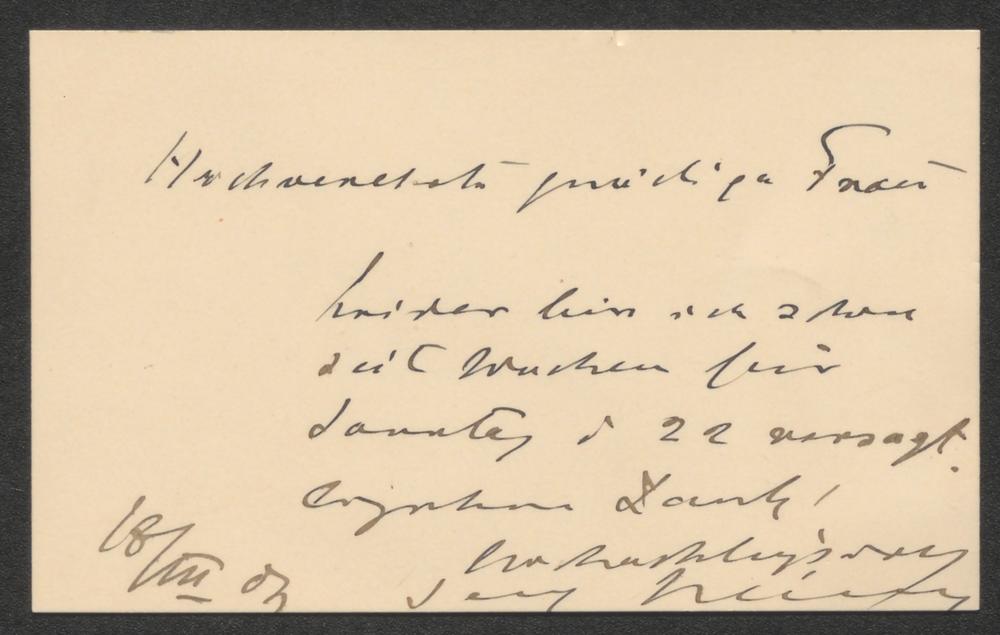 Hochverehrte gnädige Frau
leider bin ich schon
seit Wochen für
Sonntag d 22 versagt.
Ergebenen Dank!
hochachtungsvoll
18/III 03